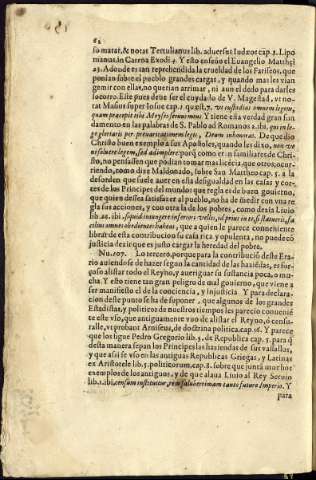 62
so matar. & notat Tertulianus lib. aduersus Iudæos cap. 2. Lipo
manus in Catena Exodi 4. Y esto enseñò el Euangelio Matthei
23. Adonde es tan reprehendida la crueldad de los Fariseos, que
ponian sobre el pueblo grandes cargas, y quando mas les vian
gemir con ellas, no querian arrimar, ni aun el dedo para darles
socorro. Este pues deue ser el cuydado de V. Magestad, vt no-
tat Masius super Iosue cap. 1. 7. vt custodias omnem legem,
quam præcepit tibi Moyses seruus meus. Y tiene esta verdad gran fun
damento en las palabras de S. Pablo ad Romanos 2. ibi, qui in le-
ge gloriaris per prævaricationem legis, Deum inhonoras. De que dio
Christo buen exemplo a sus Apostoles, quando les dixo, non ve
ni soluere legem, sed adimplere: porque como eran familiares de Chris-
to, no pensassen que podian tomar mas licẽcia, que otros, ocur-
riendo, como dize Maldonado, sobre San Mattheo cap. 5. a la
desorden que suele auer en esta desigualdad en las casas y cor-
tes de los Principes del mundo: que regla es de buen gouierno,
que quien dessea satisfazer al pueblo, no ha de medir con vna re
gla sus acciones, y con otra la de los pobres, como dezia Liuio
lib. 26. ibi, si quid iniungere inferiori velis, id prius in te, si statueris, fa
cilius omnes obedientes habeas, que a quien le parece conueniente
librar de esta contribucion su casa rica y opulenta, no puede có
justicia dezir que es justo cargar la heredad del pobre.
Nu. 107. Lo tercero, porque para la contribuciõ deste Era-
rio auiendose de hazer segun la cantidad de las haziẽdas, es fue
çoso alistar todo el Reyno, y aueriguar su sustancia poca, o mu-
cha. Y esto tiene tan gran peligro de mal gouierno, que viene a
ser manifiesto el de la conciencia, y injusticia. Y para declara-
cion deste punto se ha de suponer, que algunos de los grandes
Estadistas, y politicos de nuestros tiempos les parecio conuenir
te este vso, que antiguamente vuo de alistar el Reyno, ò censu-
ralle, vt probant Arniseus, de doctrina politica, cap. 16. Y parece
que los sigue Pedro Gregorio lib. 3. de Republica cap. 5. para q̃
desta manera sepan los Principes las haziendas de sus vasallos,
y que assi se vso en las antiguas Republicas Griegas, y Latinas
ex Aristotele lib. 5. politicorum, cap. 8. sobre que juntà mucho
exemplo de los antiguos, y de que alaua Liuio al Rey Seruio
lib. 1. ibi, censum instituit, rem saluberrimam tanto futuro Imperio. Y
para